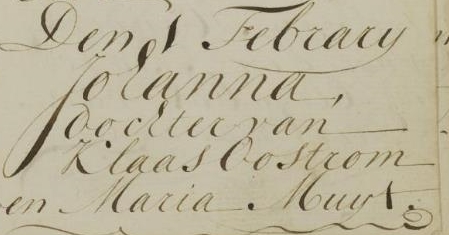 Den 1 Febrary
Johanna,
dochter van
Klaas Oostrom
en Maria Muyt.